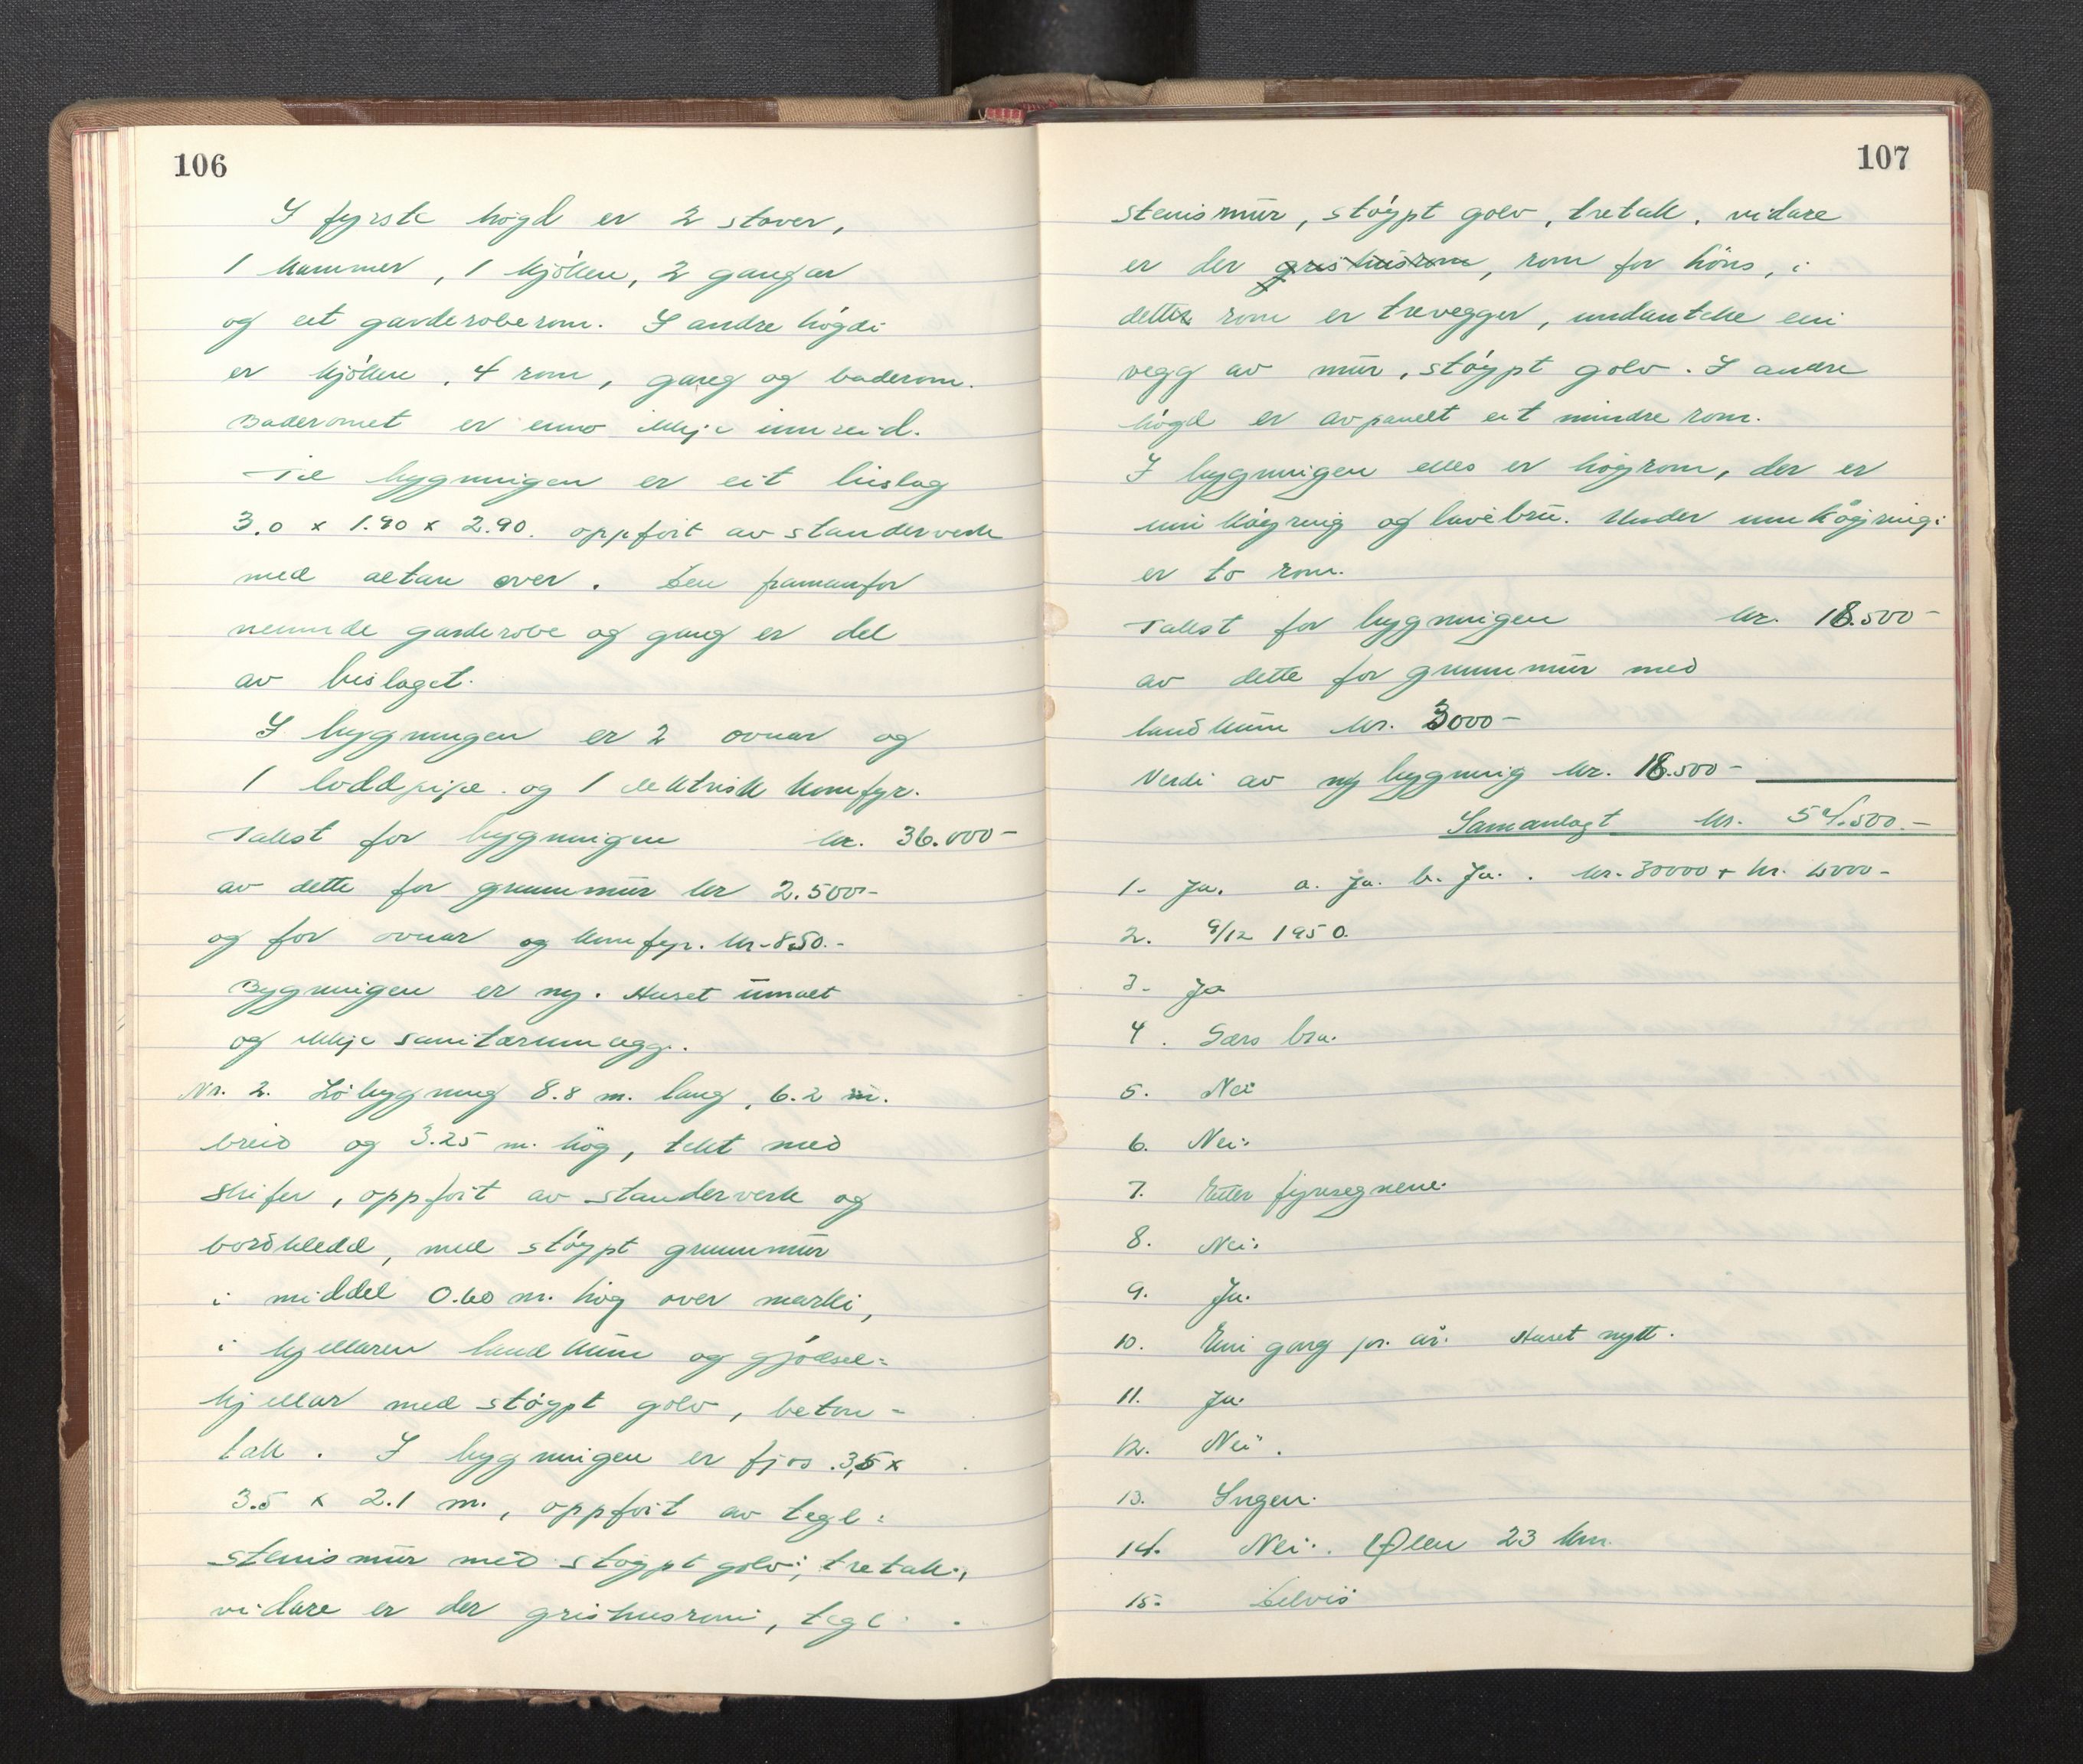 106
I fyrste høgd er 2 stover,
1 kammer, 1 kjøken, 2 gangar
og eit garderoberom. I andre høgdi
er kjøken, 4 rom, gang og baderom.
Baderomet er enno ikkje innreid.
Til bygningen er eit bislag
3.0 x 1.90 x 2.90. oppført av standerverk
med altan over. Den framanfor
nemnde garderobe og gang er del
av bislaget.
I bygningen er 2 ovnar og
1 loddpipe og 1 elektrisk komfyr.
Takst for bygningen kr. 36.000-
av dette for grunnmur kr 2.500-
og for ovnar og komfyr. kr. 850.-
Bygningen er ny. Huset umalt
og ikkje sanitærumlegg.
Nr. 2. Løbygning 8.8 m. lang, 6.2 m.
breid og 3.25 m. høg, tekt med
skifer, oppført av standerverk og
bordkledd, med støypt grunnmur
i middel 0.60 m. høg over marki,
i kjellaren landkum og gjødsel=
kjellar med støypt golv, beton-
tak. I bygningen er fjos 3,5 x
3.5 x 2.1 m., oppført av tegl=
steinsmur med støypt golv, tretak,
vidare er der grishusrom, tegl-
107
steinsmur, støypt golv, tretak, vidare
er der grishusrom, rom for høns, i
dette rom er trevegger, undanteke ein
vegg av mur, støypt golv. I andre
høgd er avpanelt eit mindre rom.
I bygningen elles er høyrom, der er
innkøyring og låvebru. Under innkøyringi
er to rom.
Takst for bygningen kr. 18.500-
av dette for grunnmur med
landkum kr. 3000-
Verdi av ny bygning kr. 18.500-
Samanlagt kr. 54.500.-
1. Ja. a. Ja. b. Ja. kr. 30000 + kr. 4000-
2. 9/12 1950.
3. Ja
4. Særs bra.
5. Nei
6. Nei.
7. Etter fyresegnene.
8. Nei.
9. Ja.
10. Ein gong pr. år. Huset nytt.
11. Ja.
12. Nei.
13. Ingen.
14. Nei. Ølen 23 km.
15. Delvis